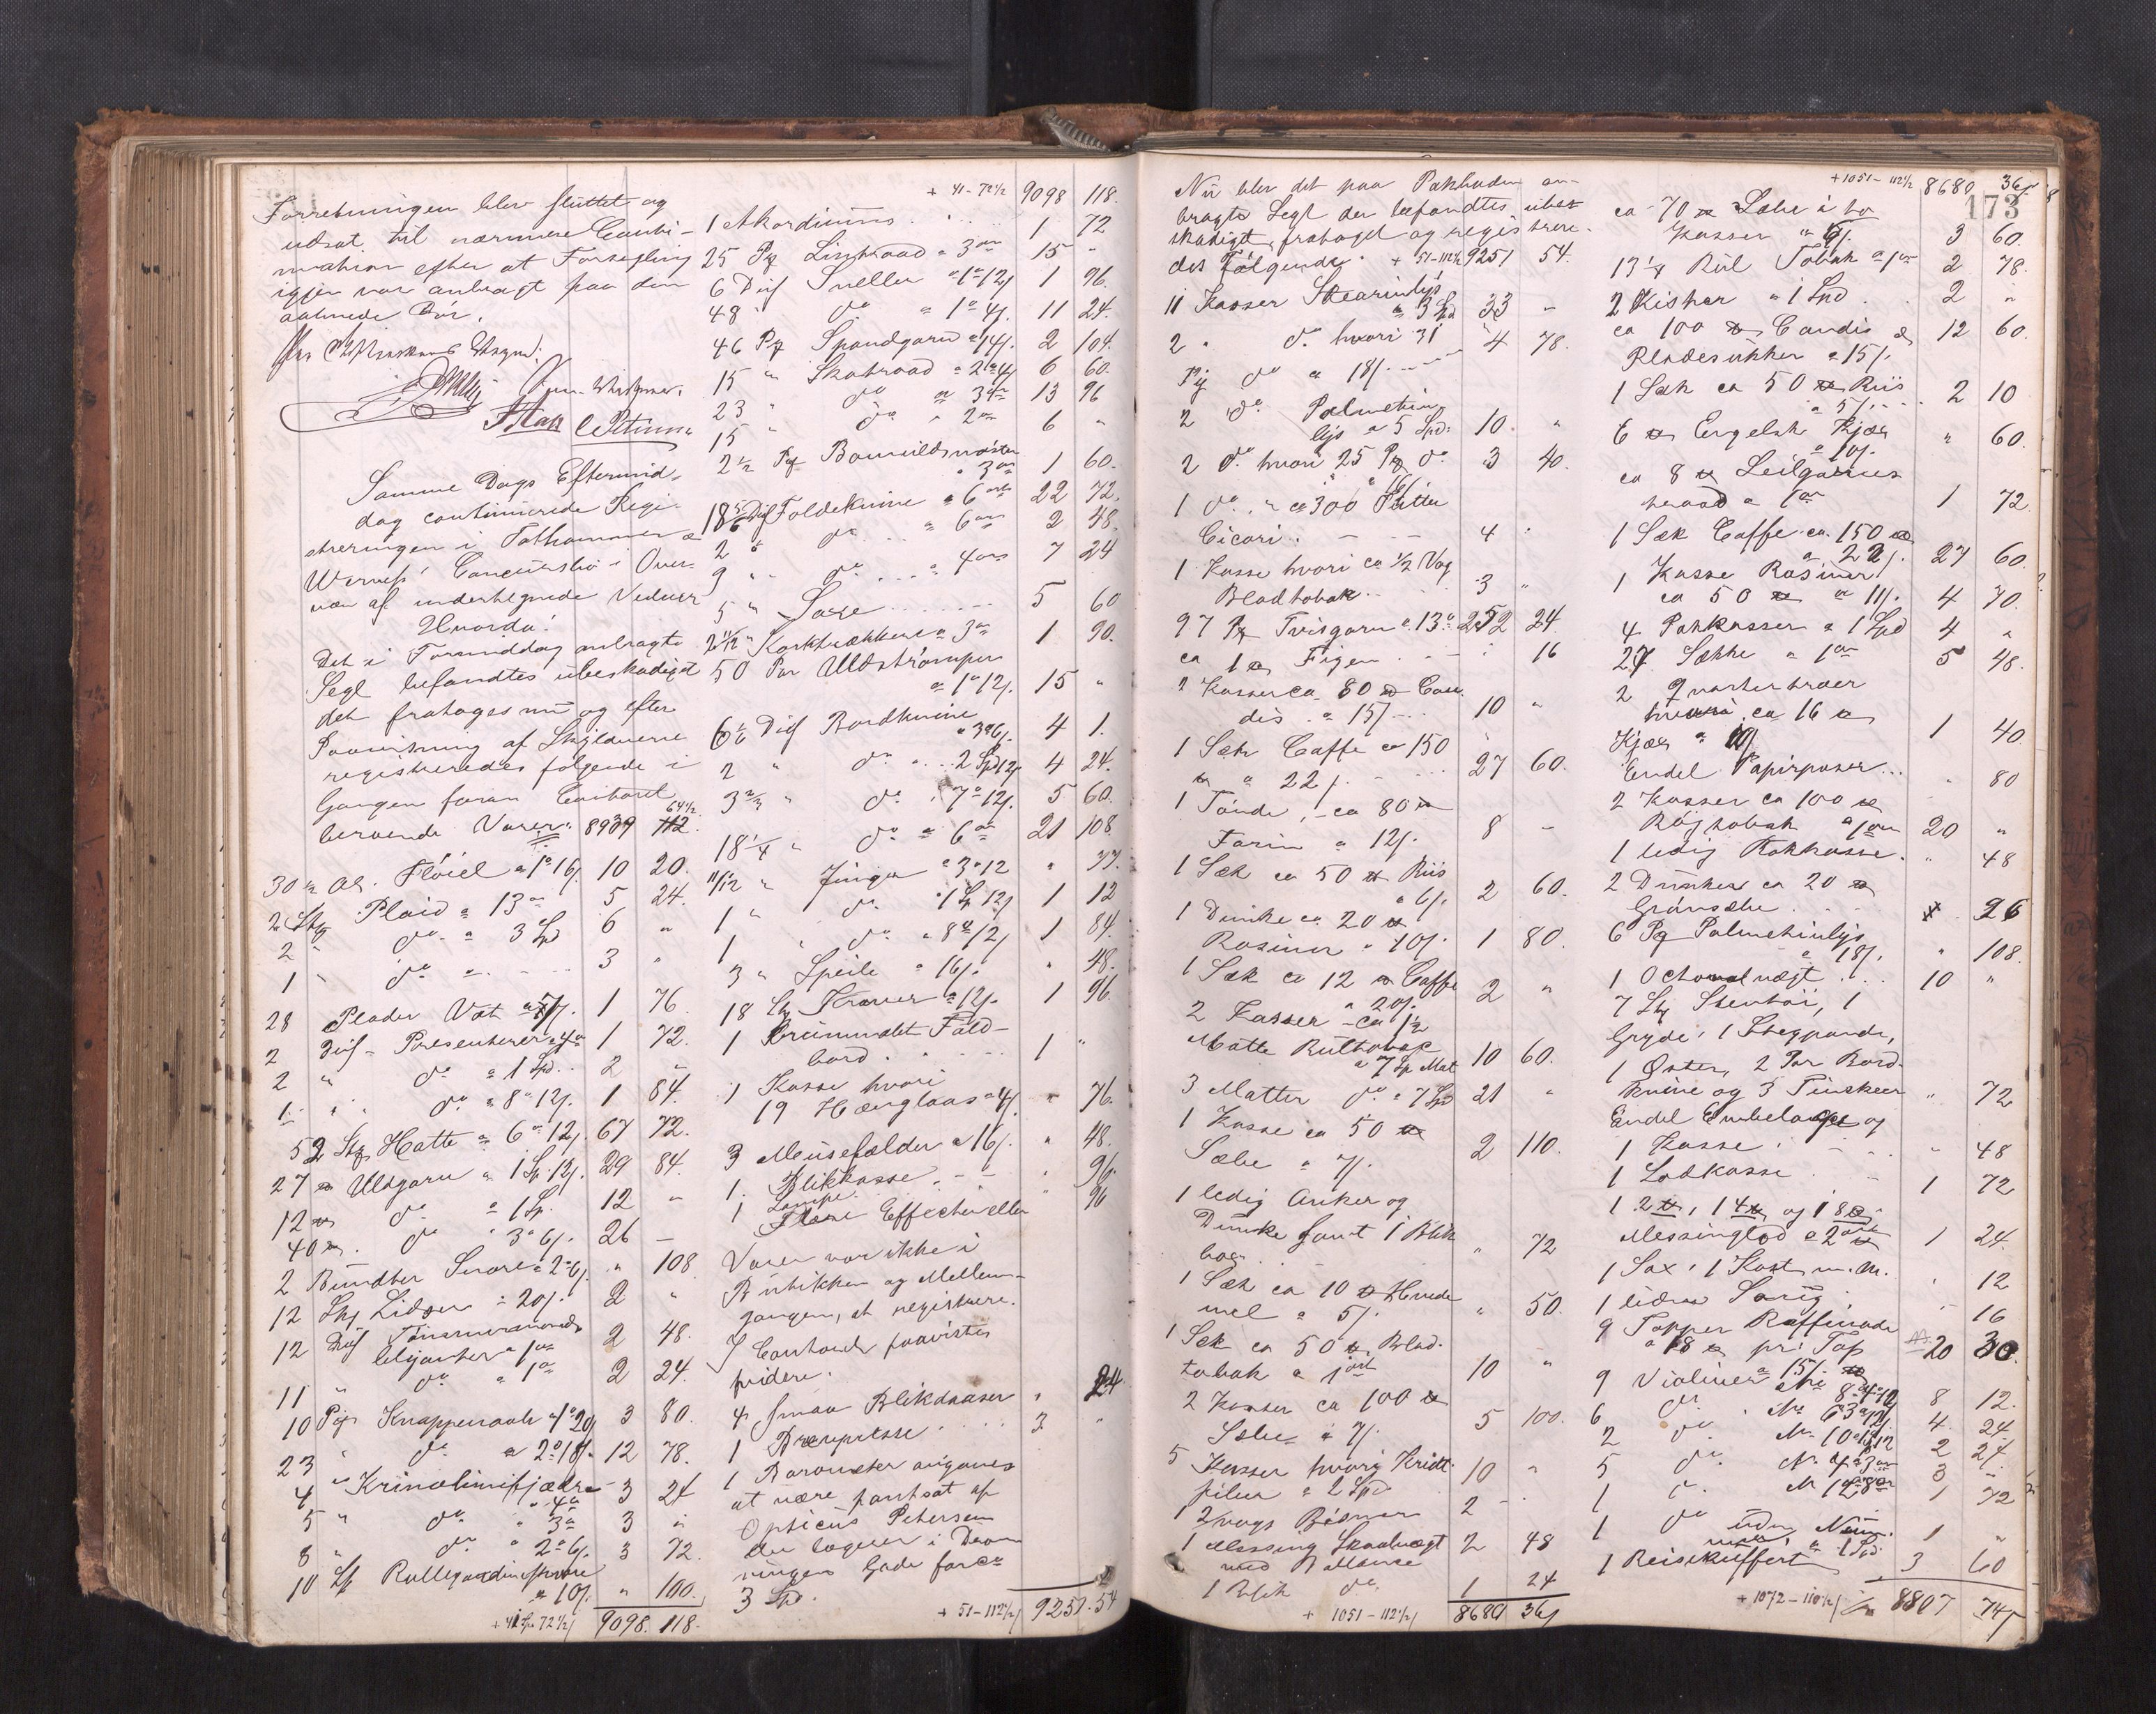 Forretningen blev sluttet og
udsat til nærmere Continuation
efter at Forsegling
igjen var anbragt paa den
aabnede Dør.
Samme Dags Eftermiddag
continuerede Registreringen
i
Concursbo i
af undertegnede
Hvorda:
Det i Formiddag anbragte
Segl befandtes ubeskadiget
det fratoges nu og efter
Paavisning af Skyldneren
registreredes følgende i
Gangen foran Contoret
beroende Varer: 8939 64½
30 ½ Al. Fløiel a 1 16/ 10 20.
2 Stkr Plaid a 13 5 24.
2 " do a 3 Spd 6 "
1 " do 3 "
28 Plader Vat 1 76
2 Dus. Presenterer 1 72.
2 " do a 1 Spd. 2 "
1 " do 8 12/. 1 84.
52 Stkr Hatte a 6 12/. 67 72.
27 Uldgarn a 1 Sp. 12/. 29 84.
12 do a 1 Sp. 12 "
40 do 3 6/. 26 -
2 Bundter Snore a 2 6/. " 108
12 Stkr Lidser a 20/. 2 "
12 Dus
a 1 2 48.
11 " do a 1 2 24.
10 Pk Knappenaale 1 20/ 3 80.
23 " do a 2 18/. 12 78.
4 " Krinolinfjædre 3 24
5 " do 3 3 "
8 " do 2 6/. 3 72.
10 Stk Rullegardinsnore
a 10/. " 100.
+ 41 Sp. 72½/ 9098. 118.
+ 41 - 72½ 9098 118.
1 Akordium 1 72
25 Pk Lintraad a 3 15 "
6 Dus Sneller a 1 12/ 1 96.
48 do a 1 4/. 11 24.
46 Pk Spundgarn a 14/. 2 104.
15 " Skotraad a 2 4/ 6 60.
23 " do a 3 13 96
15 " do a 2 6 "
2½ Pk
3 1 60.
18 5/6 Dus Foldeknive a 6 22 72.
2 " do a 6 2 48.
9 " do a 4 7 24
5 " Saxe 5 60
2 11/12 " Korktrækkere a 3 1 90.
50 Par Uldstrømper
a 1 12/. 15 "
6 1/6 Dus Bordknive
a 3 6/. 4 1.
2 " do 2 Spd 12/ 4 24.
3 2/3 " do 7 12/. 5 60.
18 1/4 " do a 6 21 108
11/12 " 3 12 "
1 " do 1 Sp 12/ 1 12
1 " do a 8 12/ 1 84.
3 " Speile a 16/. " 48.
18 Stk a 12/. 1 96.
1
bord 1 "
1 Kasse hvori
19 a 4/ " 76.
3 Musefælder a 16/. " 48.
1 Blikkasse " 96.
1 Lampe " 96
Flere Effecter eller
Varer var ikke i
Butikken og Mellemgangen,
at registrere.
I Contoret paavistes
videre.
4 smaa Blikdaaser " 24
1 2 "
1 Barometer angaves
at være pantsat af
Opticus Petersen
der logerer i
Gade for ca
3 Spd.
+ 51 - 112½/ 9251. 54
Nu blev det paa Pakboden anbragte
Segl der befandtes ubeskadiget,
frataget og registreredes
Følgende. + 51 - 112½ 9251 54.
11 Kasser Stearinlys
a 3 Spd 33 -
2 " do hvori 31
Pk do a 18/. 4 78.
2 do Palmetin
lys a 5 Spd. 10. "
2 do hvori 25 Pk do
a 16/. 3 40.
1 do " ca 300 Putter
Cicori. 4 "
1 Kasse hvori ca ½ Vog
Bladtobak 3 "
97 Pk Tvisgarn a 13 252 24.
ca 1 Figen " 16
2 Kasser ca 80 Candis
a 15/. 10 "
1 Sæk Caffe ca 150
a 22/. 27 60.
1 Tønde, ca 80
Farin a 12/. 8 -
1 Sæk ca 50 Riis
a 6/. 2 60.
1 Dunke ca 20
Rosiner a 10/. 1 80.
1 Sæk ca 12 Caffe
a 20/. 2 "
2 Kasser ca 1½
Matte Rultobak
a 7 Sp Mat 10 60.
3 Matter do a 7 Spd 21 "
1 Kasse ca 50
Sæbe a 7/. 2 110.
1 ledig Anker og
Dunke samt 1 Blik
" 72
1 Sæk ca 10 Hvedemel
a 5/. " 50.
1 Sæk ca 50 Bladtobak
a 1 10 "
2 Kasser ca 100
Sæbe a 7/. 5 100.
5 Kasser hvori Kridtpiber
a 2 Spd 10 "
1 2 vogs Bismer 2 "
1 Messing Skaalvægt
med 2 48
1 Blik do. 1 24
+ 1051 - 112½/ 8680 36/
+ 1051 - 112½ 8680 36/
173
ca 70 Sæbe i to
Kasser a 6/. 3 60.
13 1/8 Rul Tobak a 1 2 78.
2 Kister a 1 Spd 2 "
ca 100 Candis &
Pladesukker a 15/. 12 60.
1 Sæk ca 50 Riis
a 5/. 2 10
6 Engelsk Kjær
a 10/. " 60.
ca 8 Seilgarns
traad a 1 1 72
1 Sæk Caffe ca. 150
a 22/. 27 60.
1 Kasse Rosiner
ca 50 a 11/. 4 70.
4 Pakkasser a 1 Spd 4 "
27 Sække a 1 5 48.
2
hvori ca 16
Kjær a 10/ 1 40
Endel Papirposer " 80
2 Kasser ca 100
Røgtobak a 1 20 "
1 ledig Pakkasse. " 48
2 Dunker ca 20
Grønsæbe 26
6 Pk Palmetinlys
a 18/. " 108.
1 10 "
7 Stk Stentøi, 1
Gryde, 1 Stegpande,
1 Øster, 2 Par Bordknive
og 3 " 72
Endel Emballage og
1 Kasse " 48
1 Lodkasse 1 72
1 2, 1 4 og 1 8
Messinglod a 2 1 24
1 Sax, 1 Kost m. m. " 12
1 liden " 16
9 Topper Raffinade
a 18 pr. Top
a 15/. 20 30.
9 Violiner 8 12.
6 do 4 24
2 do 2 24.
5 do 3 "
1 do 1 72
1 do uden Num. 1 "
1 Reisekuffert 3 60
+ 1072 - 110½/ 8807 74/